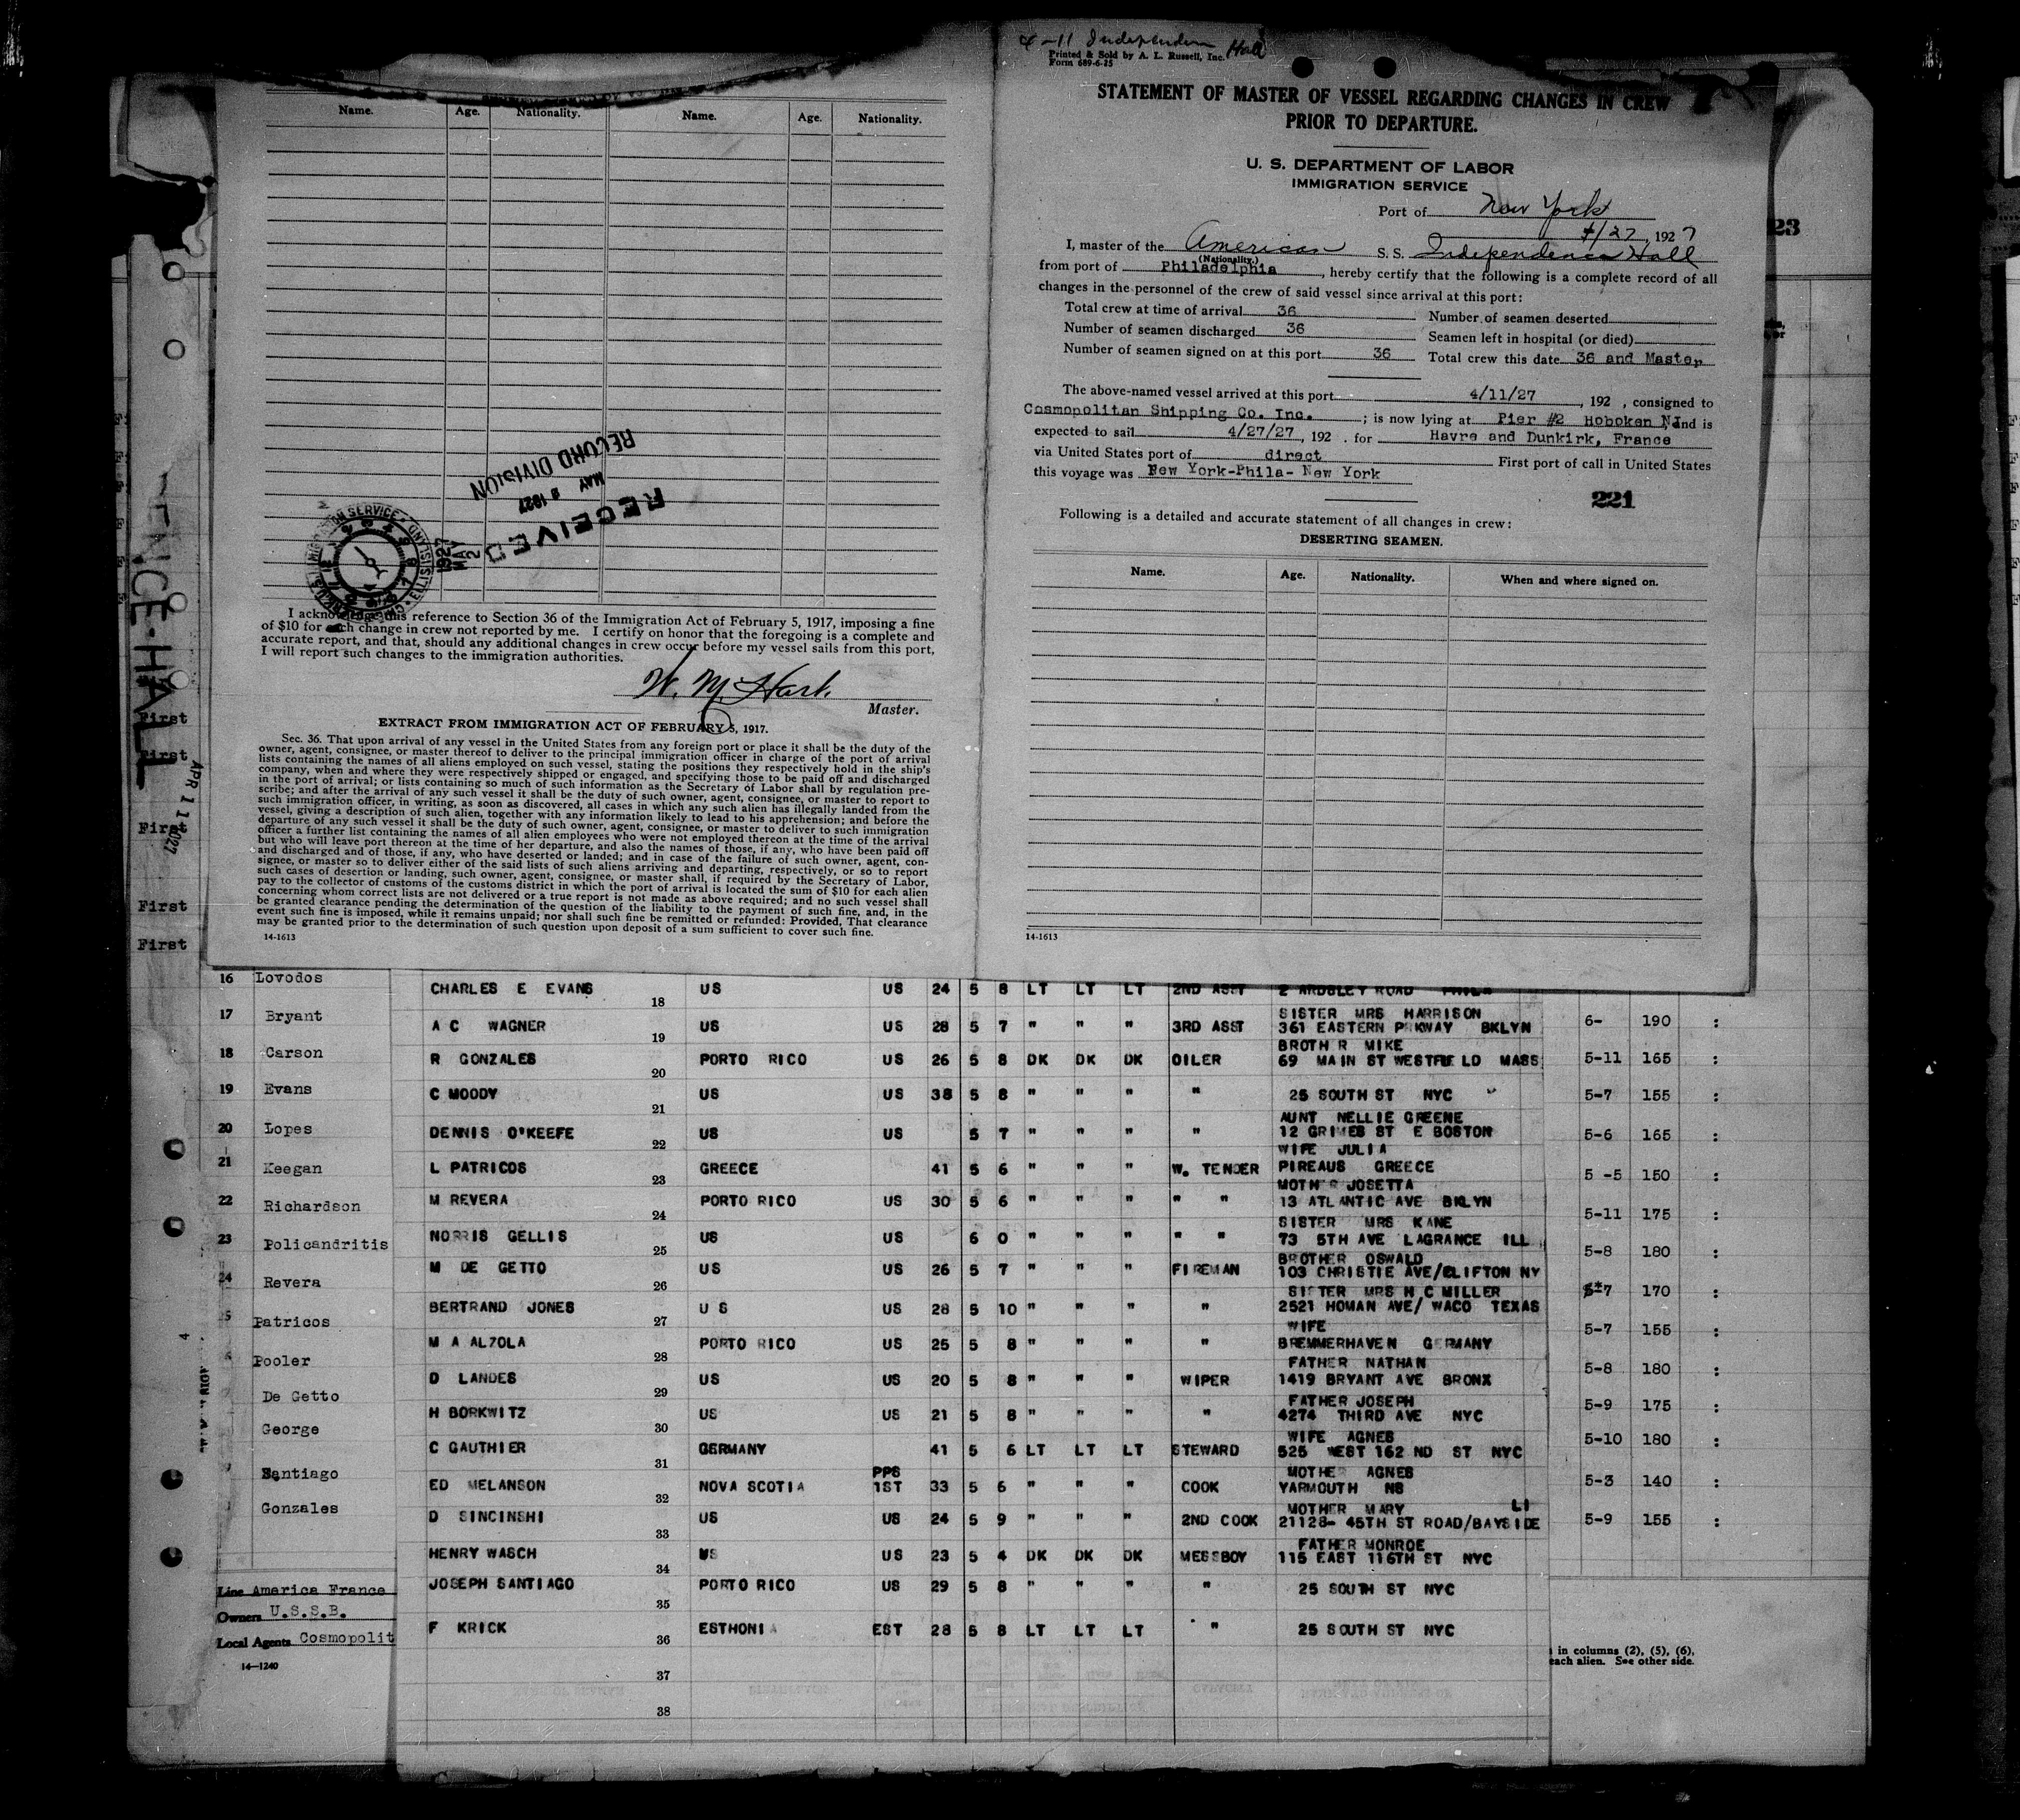 4-11 Independen Hall
Printed & Sold by A. L. Russell, Inc.
Form 689-6-25
STATEMENT OF MASTER OF VESSEL REGARDING CHANGES IN CREW
PRIOR TO DEPARTURE.
U. S. DEPARTMENT OF LABOR
IMMIGRATION SERVICE
Port of New York
4/27, 1927
I, master of the American S. S. Independence Hall
(Nationality.)
from port of Philadelphia, hereby certify that the following is a complete record of all
changes in the personnel of the crew of said vessel since arrival at this port:
Total crew at time of arrival 36 Number of seamen deserted
Number of seamen discharged 36 Seamen left in hospital (or died)
Number of seamen signed on at this port 36 Total crew this date 36 and Master
The above-named vessel arrived at this port 4/11/27, 192 , consigned to
Cosmopolitan Shipping Co. Inc. ; is now lying at Pier #2 Hoboken NJ and is
expected to sail 4/27/27, 192 . for Havre and Dunkirk, France
via United States port of direct First port of call in United States
this voyage was New York-Phila- New York
221
Following is a detailed and accurate statement of all changes in crew:
DESERTING SEAMEN.
Name. Age. Nationality. When and where signed on.
14-1613
Name. Age. Nationality. Name. Age. Nationality.
RECEIVED
MAY 2 1927
RECORD DIVISION
I acknowledge this reference to Section 36 of the Immigration Act of February 5, 1917, imposing a fine
of $10 for each change in crew not reported by me. I certify on honor that the foregoing is a complete and
accurate report, and that, should any additional changes in crew occur before my vessel sails from this port,
I will report such changes to the immigration authorities.
W. M. Hart
Master.
EXTRACT FROM IMMIGRATION ACT OF FEBRUARY 5, 1917.
Sec. 36. That upon arrival of any vessel in the United States from any foreign port or place it shall be the duty of the
owner, agent, consignee, or master thereof to deliver to the principal immigration officer in charge of the port of arrival
lists containing the names of all aliens employed on such vessel, stating the positions they respectively hold in the ship's
company, when and where they were respectively shipped or engaged, and specifying those to be paid off and discharged
in the port of arrival; or lists containing so much of such information as the Secretary of Labor shall by regulation pre-
scribe; and after the arrival of any such vessel it shall be the duty of such owner, agent, consignee, or master to report to
such immigration officer, in writing, as soon as discovered, all cases in which any such alien has illegally landed from the
vessel, giving a description of such alien, together with any information likely to lead to his apprehension; and before the
departure of any such vessel it shall be the duty of such owner, agent, consignee, or master to deliver to such immigration
officer a further list containing the names of all alien employees who were not employed thereon at the time of the arrival
but who will leave port thereon at the time of her departure, and also the names of those, if any, who have been paid off
and discharged and of those, if any, who have deserted or landed; and in case of the failure of such owner, agent, con-
signee, or master so to deliver either of the said lists of such aliens arriving and departing, respectively, or so to report
such cases of desertion or landing, such owner, agent, consignee, or master shall, if required by the Secretary of Labor,
pay to the collector of customs of the customs district in which the port of arrival is located the sum of $10 for each alien
concerning whom correct lists are not delivered or a true report is not made as above required; and no such vessel shall
be granted clearance pending the determination of the question of the liability to the payment of such fine, and, in the
event such fine is imposed, while it remains unpaid; nor shall such fine be remitted or refunded: Provided, That clearance
may be granted prior to the determination of such question upon deposit of a sum sufficient to cover such fine.
14-1613
23
ENCE-HALL
APR 11 1927
First
First
First
First
First
16 Lovodos
17 Bryant
18 Carson
19 Evans
20 Lopes
21 Keegan
22 Richardson
23 Policandritis
24 Revera
25 Patricos
Pooler
De Getto
George
Santiago
Gonzales
Line America France
Owners U.S.S.B.
Local Agents Cosmopolit
14-1240
CHARLES E EVANS 18 US US 24 5 8 LT LT LT 2ND ASST 2 ARDSLEY ROAD PHILA
SISTER MRS HARRISON
A C WAGNER 19 US US 28 5 7 " " " 3RD ASST 361 EASTERN PRKWAY BKLYN
BROTH R MIKE
R GONZALES 20 PORTO RICO US 26 5 8 DK DK DK OILER 69 MAIN ST WESTFIELD MASS
C MOODY 21 US US 38 5 8 " " " " 25 SOUTH ST NYC
AUNT NELLIE GREENE
DENNIS O'KEEFE 22 US US 5 7 " " " " 12 GRIMES ST E BOSTON
WIFE JULIA
L PATRICOS 23 GREECE 41 5 6 " " " W. TENDER PIREAUS GREECE
MOTHER JOSETTA
M REVERA 24 PORTO RICO US 30 5 6 " " " " " 13 ATLANTIC AVE BKLYN
SISTER MRS KANE
NORRIS GELLIS 25 US US 6 0 " " " " " 73 5TH AVE LAGRANCE ILL
BROTHER OSWALD
M DE GETTO 26 US US 26 5 7 " " " FIREMAN 103 CHRISTIE AVE/CLIFTON NY
SISTER MRS H C MILLER
BERTRAND JONES 27 U S US 28 5 10 " " " " 2521 HOMAN AVE/ WACO TEXAS
WIFE
M A ALZOLA 28 PORTO RICO US 25 5 8 " " " " BREMMERHAVEN GERMANY
FATHER NATHAN
D LANDES 29 US US 20 5 8 " " " WIPER 1419 BRYANT AVE BRONX
FATHER JOSEPH
H BORKWITZ 30 US US 21 5 8 " " " " 4274 THIRD AVE NYC
WIFE AGNES
C GAUTHIER 31 GERMANY 41 5 6 LT LT LT STEWARD 525 WEST 162 ND ST NYC
PPS MOTHE AGNES
ED MELANSON 32 NOVA SCOTIA 1ST 33 5 6 " " " COOK YARMOUTH NS
MOTHER MARY LI
D SINCINSHI 33 US US 24 5 9 " " " 2ND COOK 21128- 45TH ST ROAD/BAYSIDE
FATHER MONROE
HENRY WASCH 34 US US 23 5 4 DK DK DK MESSBOY 115 EAST 116TH ST NYC
JOSEPH SANTIAGO 35 PORTO RICO US 29 5 8 " " " " 25 SOUTH ST NYC
F KRICK 36 ESTHONIA EST 28 5 8 LT LT LT " 25 SOUTH ST NYC
37
38
6- 190 :
5-11 165 :
5-7 155 :
5-6 165 :
5 -5 150 :
5-11 175 :
5-8 180 :
5-7 170 :
5-7 155 :
5-8 180 :
5-9 175 :
5-10 180 :
5-3 140 :
5-9 155 :
in columns (2), (5), (6),
each alien. See other side.